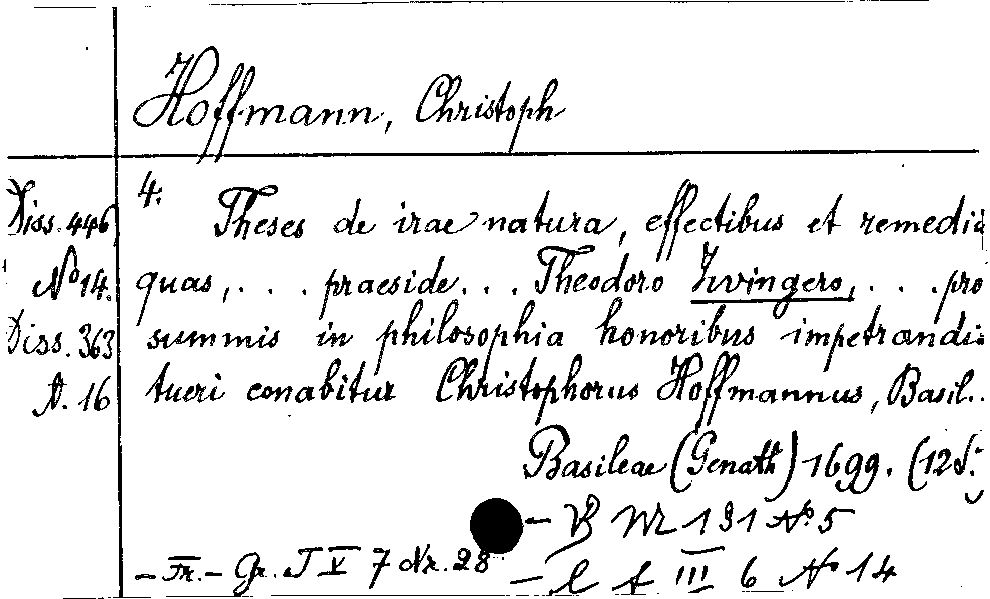 Hoffmann, Christoph
Diss. 446
No 14.
Diss. 363
N. 16
4.
Theses de irae natura, effectibus et remediis
quas, . . . praeside . . . Theodoro Zvingero, . . . pro
summis in philosophia honoribus impetrandis
tueri conabitur Christophorus Hoffmannus, Basil..
Basileae (Genath) 1699. (12 S.)
– VB M 131 No 5
– Fr. – Gr. J V 7 Nr. 28
– l f III 6 No 14